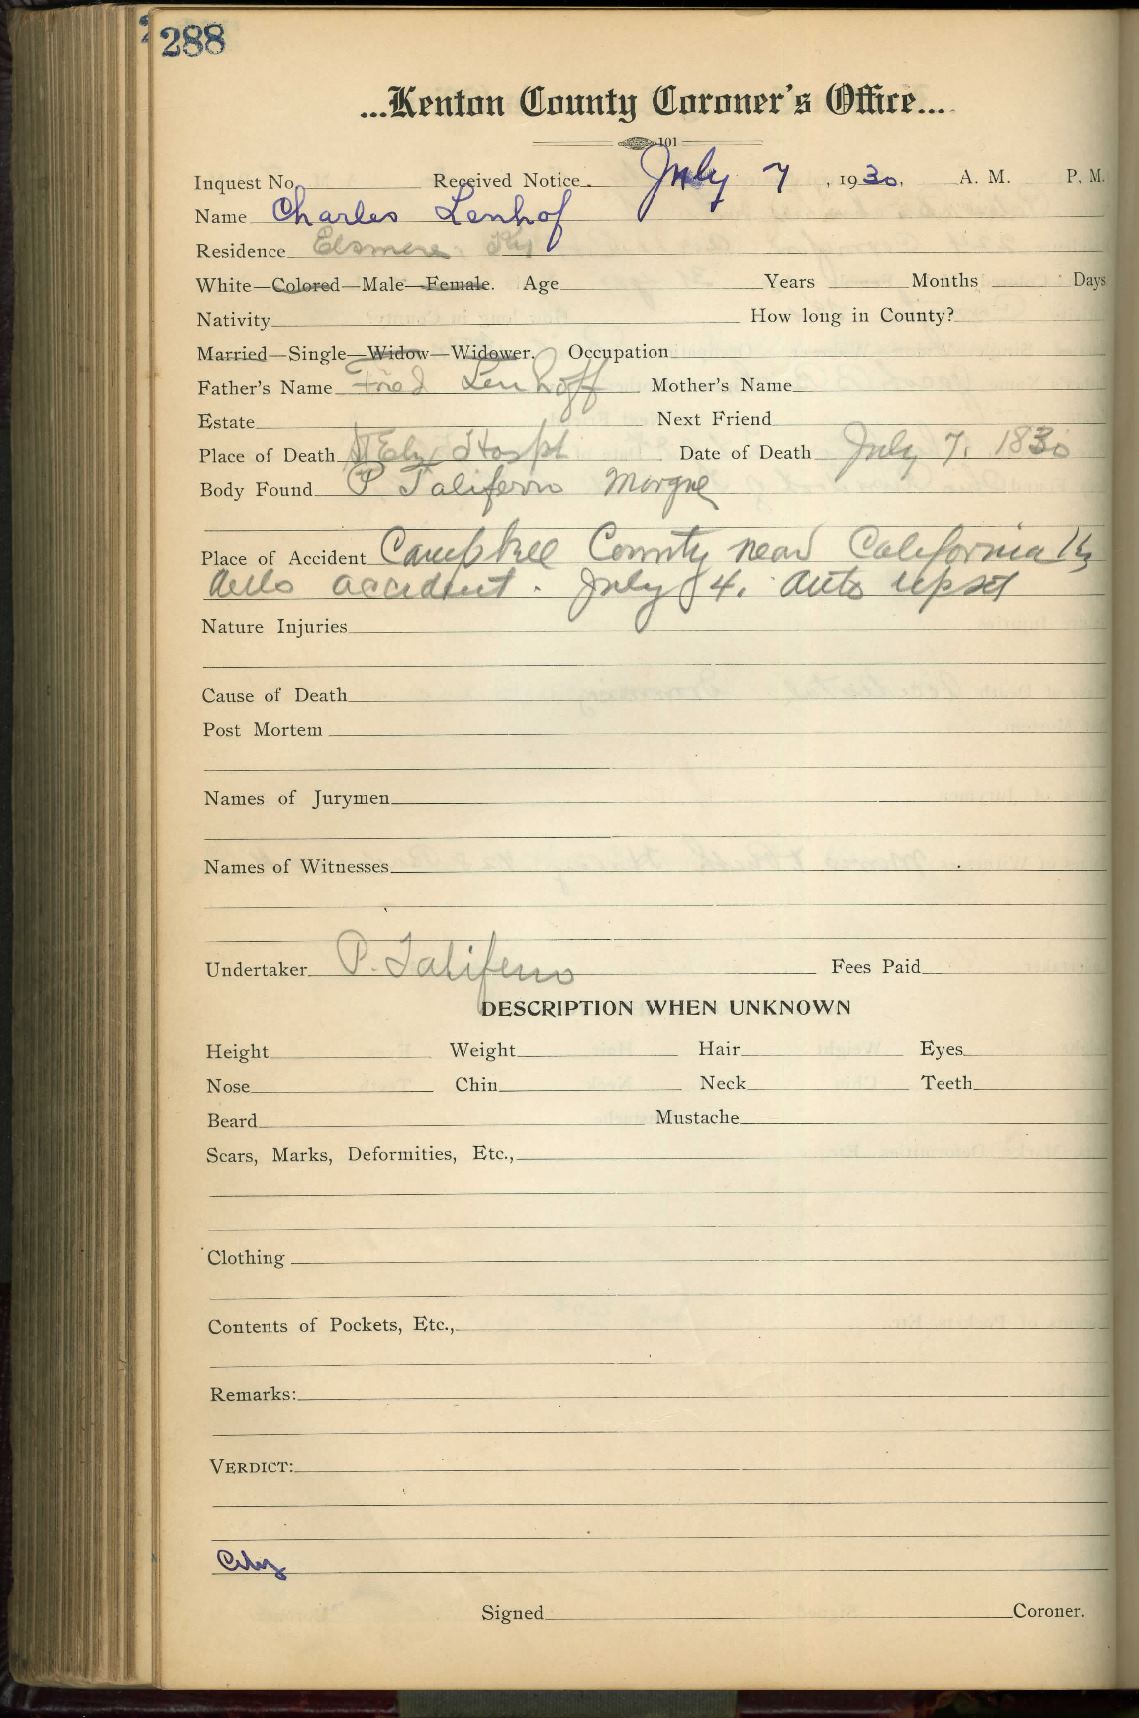 288
...Kenton County Coroner's Office...
101
Inquest No. Received Notice. July 7, 1930, A. M. P. M.
Name Charles Lenhof
Residence Elsmere, Ky
White—Colored—Male—Female. Age Years Months Days
Nativity How long in County?
Married—Single—Widow—Widower. Occupation
Father's Name Fred Lenhoff Mother's Name
Estate Next Friend
Place of Death St Eliz Hospt Date of Death July 7. 1830
Body Found P Taliferro Morgue
Place of Accident Campbell County near California Ky
Auto accident. July 4. Auto upset
Nature Injuries
Cause of Death
Post Mortem
Names of Jurymen
Names of Witnesses
Undertaker P. Taliferro Fees Paid
DESCRIPTION WHEN UNKNOWN
Height Weight Hair Eyes
Nose Chin Neck Teeth
Beard Mustache
Scars, Marks, Deformities, Etc.,
Clothing
Contents of Pockets, Etc.,
Remarks:
VERDICT:
City
Signed Coroner.